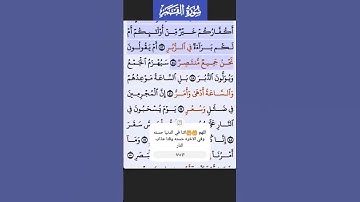 سُورَةُ القَمَرِ
أَكُفَّارُكُمْ خَيْرٌ مِّنْ أُوْلَٰٓئِكُمْ أَمْ
لَكُم بَرَآءَةٌ فِي ٱلزُّبُرِ ٤٣ أَمْ يَقُولُونَ
نَحْنُ جَمِيعٌ مُّنتَصِرٌ ٤٤ سَيُهْزَمُ ٱلْجَمْعُ
وَيُوَلُّونَ ٱلدُّبُرَ ٤٥ بَلِ ٱلسَّاعَةُ مَوْعِدُهُمْ
وَٱلسَّاعَةُ أَدْهَىٰ وَأَمَرُّ ٤٦ إِنَّ ٱلْمُجْرِمِينَ
فِي ضَلَٰلٍ وَسُعُرٍ ٤٧ يَوْمَ يُسْحَبُونَ فِي
ٱلنَّارِ سَقَرَ
إِنَّا وَمَآ
أَمْرُنَآ
اللهم اتنا في الدنيا حسنه
وفي الاخره حسنه وقنا عذاب
النار